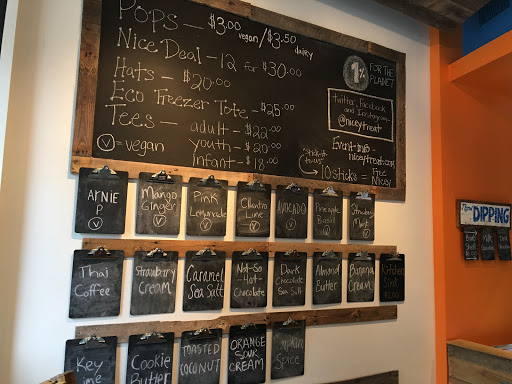 Pops — $3.00 vegan / $3.50 dairy
Nice Deal - 12 for $30.00
Hats - $20.00
Eco Freezer Tote - $25.00
Tees — adult - $22.00
Ⓥ = vegan youth - $20.00
infant - $18.00
1% FOR THE PLANET
twitter, Facebook
and Instagram-
@niceytreat
Event info -
niceytreat.com
10 sticks = Free Nicey
ARNIE P Ⓥ
Mango Ginger Ⓥ
Pink Lemonade Ⓥ
Cilantro Lime Ⓥ
AVOCADO Ⓥ
Pineapple Basil Ⓥ
Strawberry Mint Ⓥ
Thai Coffee
Strawberry CREAM
Caramel Sea Salt
Not-So-Hot-Chocolate
Dark Chocolate Sea Salt
Almond Butter
Banana Cream
Kitchen Sink
Key Lime
Cookie Butter
TOASTED COCONUT
ORANGE SOUR CREAM
Pumpkin Spice
DIPPING